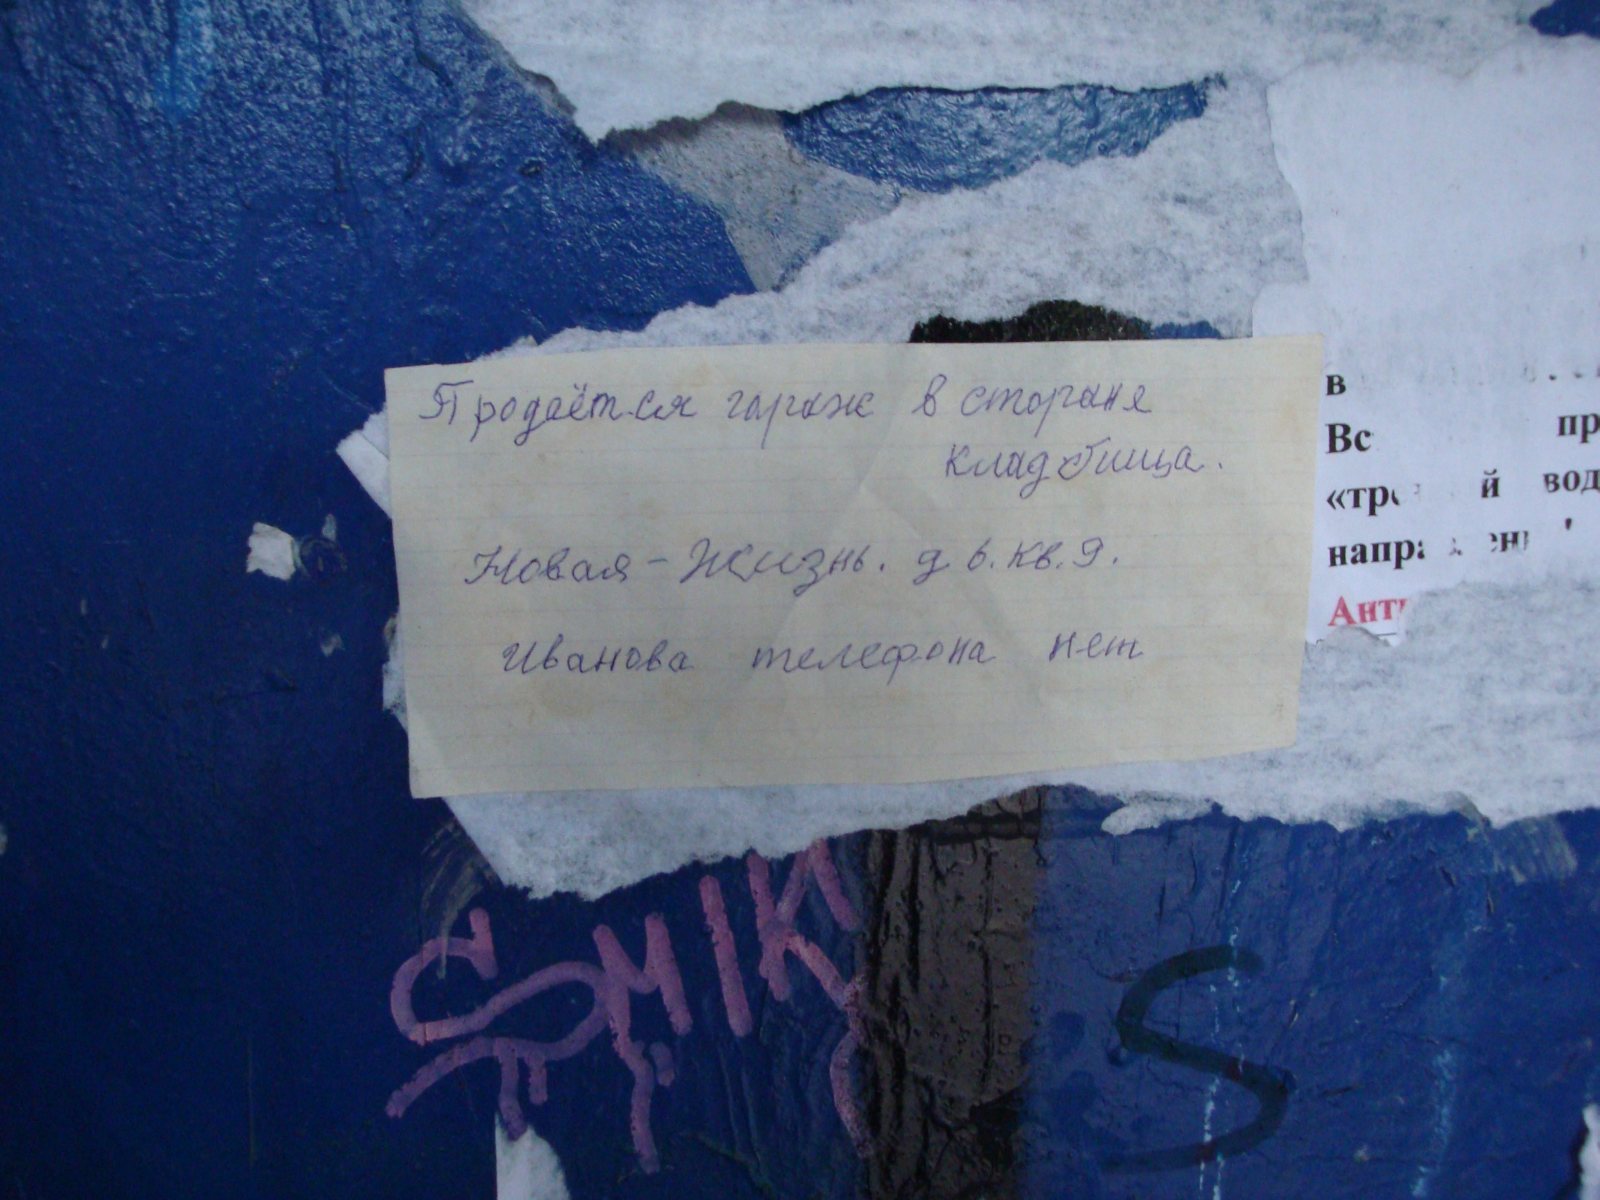 Продаётся гараж в сторане
кладбища.
Новая-Жизнь. д 6. кв. 9.
Иванова телефона нет
в
Вс пр
«тре й вод
направлен
Анти
SMIK
S